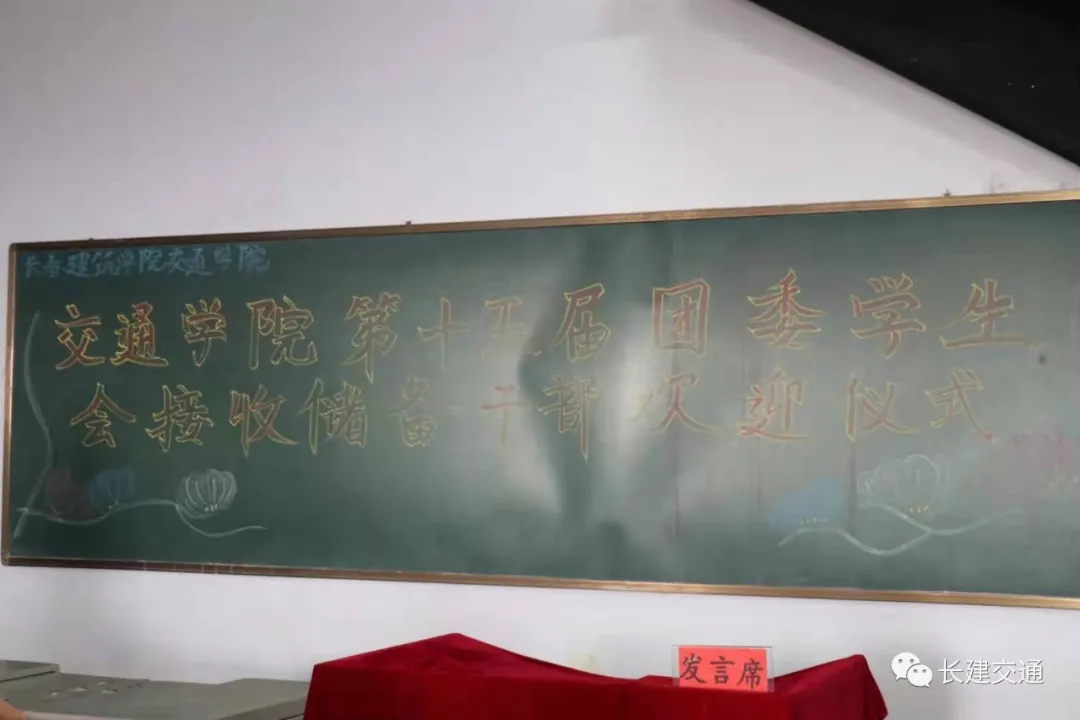 长春建筑学院交通学院
交通学院第十五届团委学生
会接收储备干部欢迎仪式
发言席
长建交通